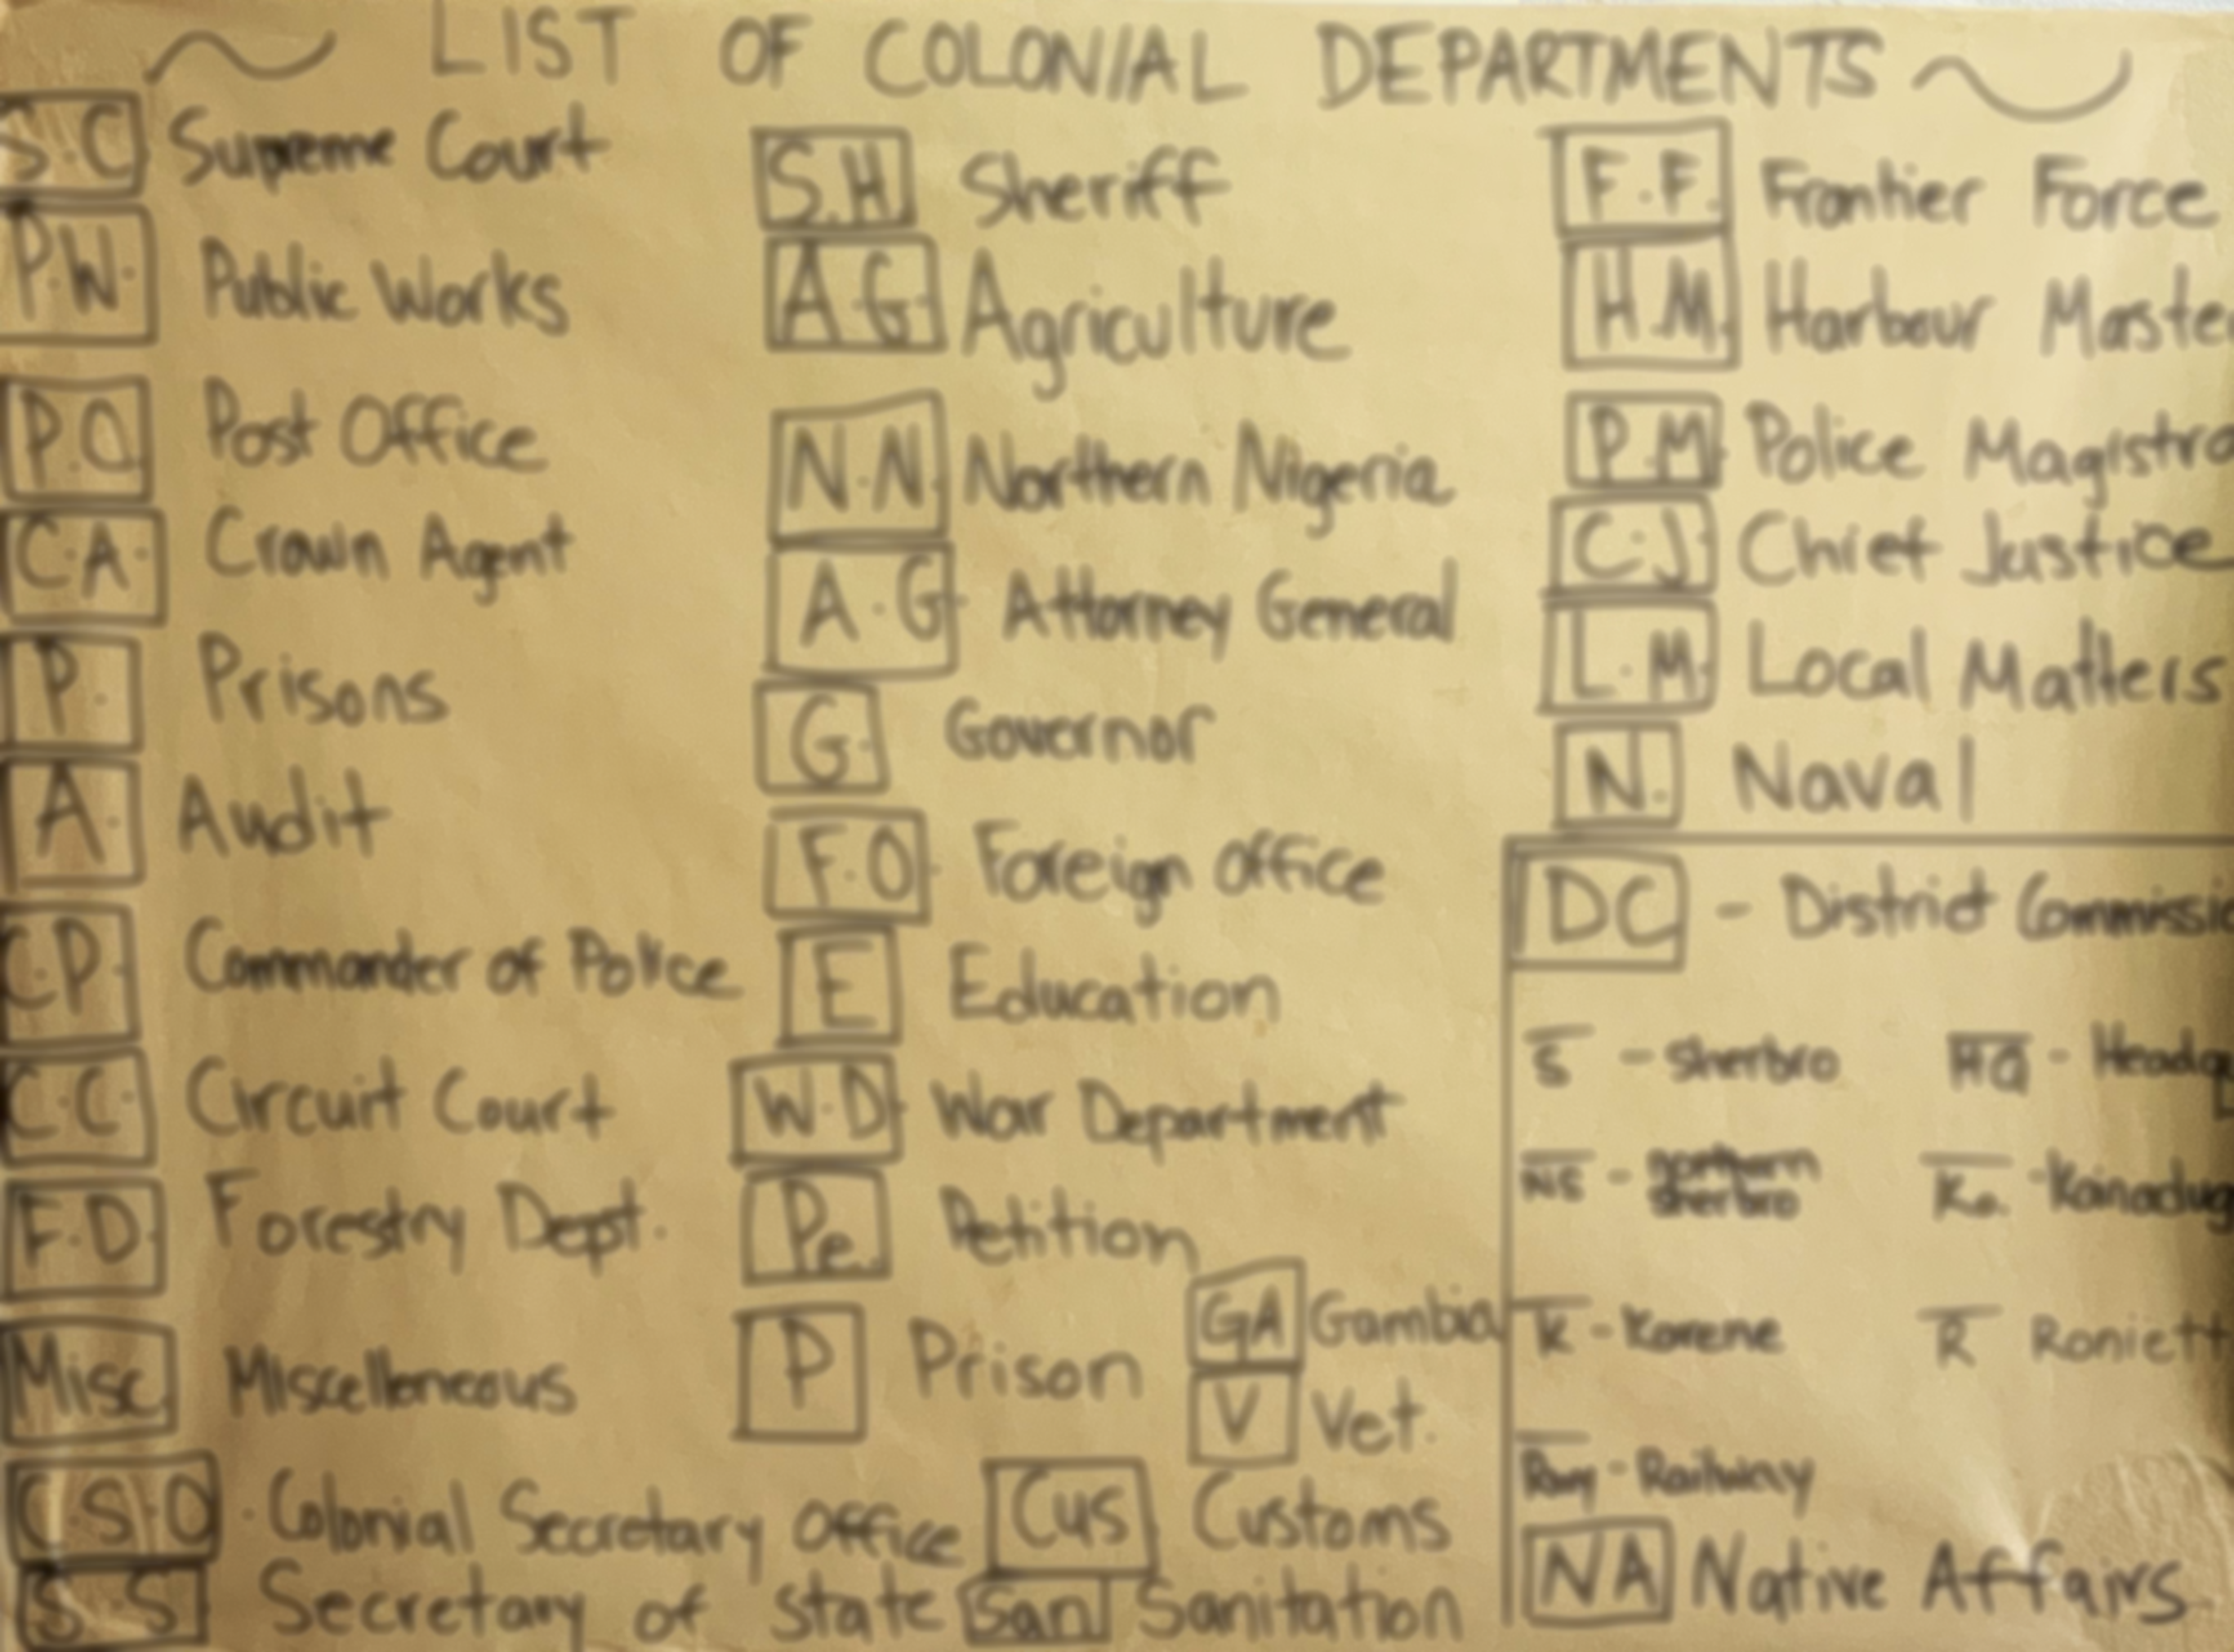 ~ LIST OF COLONIAL DEPARTMENTS ~
S.C Supreme Court
P.W. Public Works
P.O. Post Office
C.A. Crown Agent
P. Prisons
A. Audit
C.P. Commander of Police
C.C. Circuit Court
F.D. Forestry Dept.
Misc. Miscellaneous
C.S.O. Colonial Secretary Office
S.S. Secretary of State
S.H. Sheriff
A.G. Agriculture
N.N. Northern Nigeria
A.G. Attorney General
G. Governor
F.O. Foreign Office
E Education
W.D. War Department
Pe. Petition
P Prison
GA Gambia
V Vet.
Cus. Customs
San Sanitation
F.F. Frontier Force
H.M. Harbour Maste
P.M. Police Magistra
C.J. Chief Justice
L.M. Local Matters
N. Naval
DC - District Commissio
S - Sherbro
HQ - Headqu
NS - northern
sherbro
Ko. - Koinadug
K - Karene
R Roniett
Rwy - Railway
NA Native Affairs